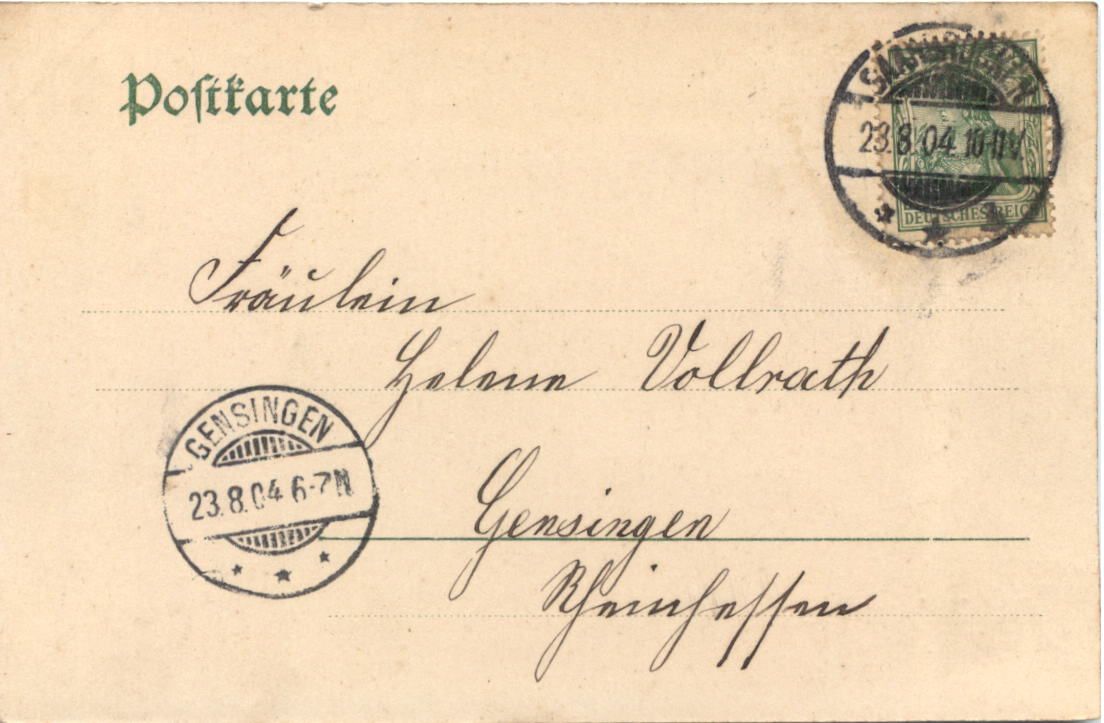 Postkarte
SAARBRÜCKEN
23.8.04.10-11V.
DEUTSCHES REICH
Fräulein
Helene Vollrath
GENSINGEN
23.8.04 6-7N
Gensingen
Rheinhessen